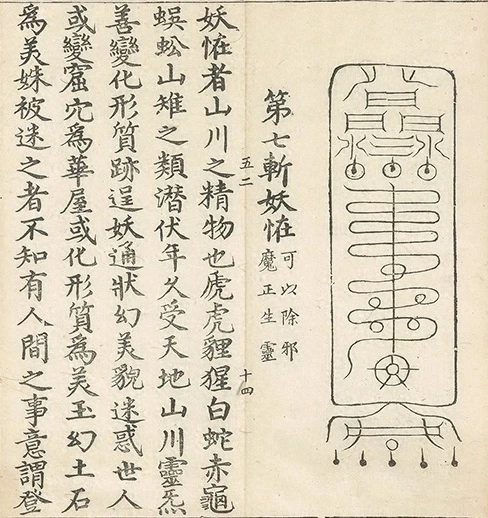 第七斬妖恠
可以除邪
魔正生靈
五二
十四
妖恠者山川之精物也虎虎貍猩白蛇赤龜
蜈蚣山雉之類潛伏年久受天地山川靈炁
善變化形質跡逞妖通狀幻美貌迷惑世人
或變窟穴為華屋或化形質為美玉幻土石
為美姝被迷之者不知有人間之事意謂登